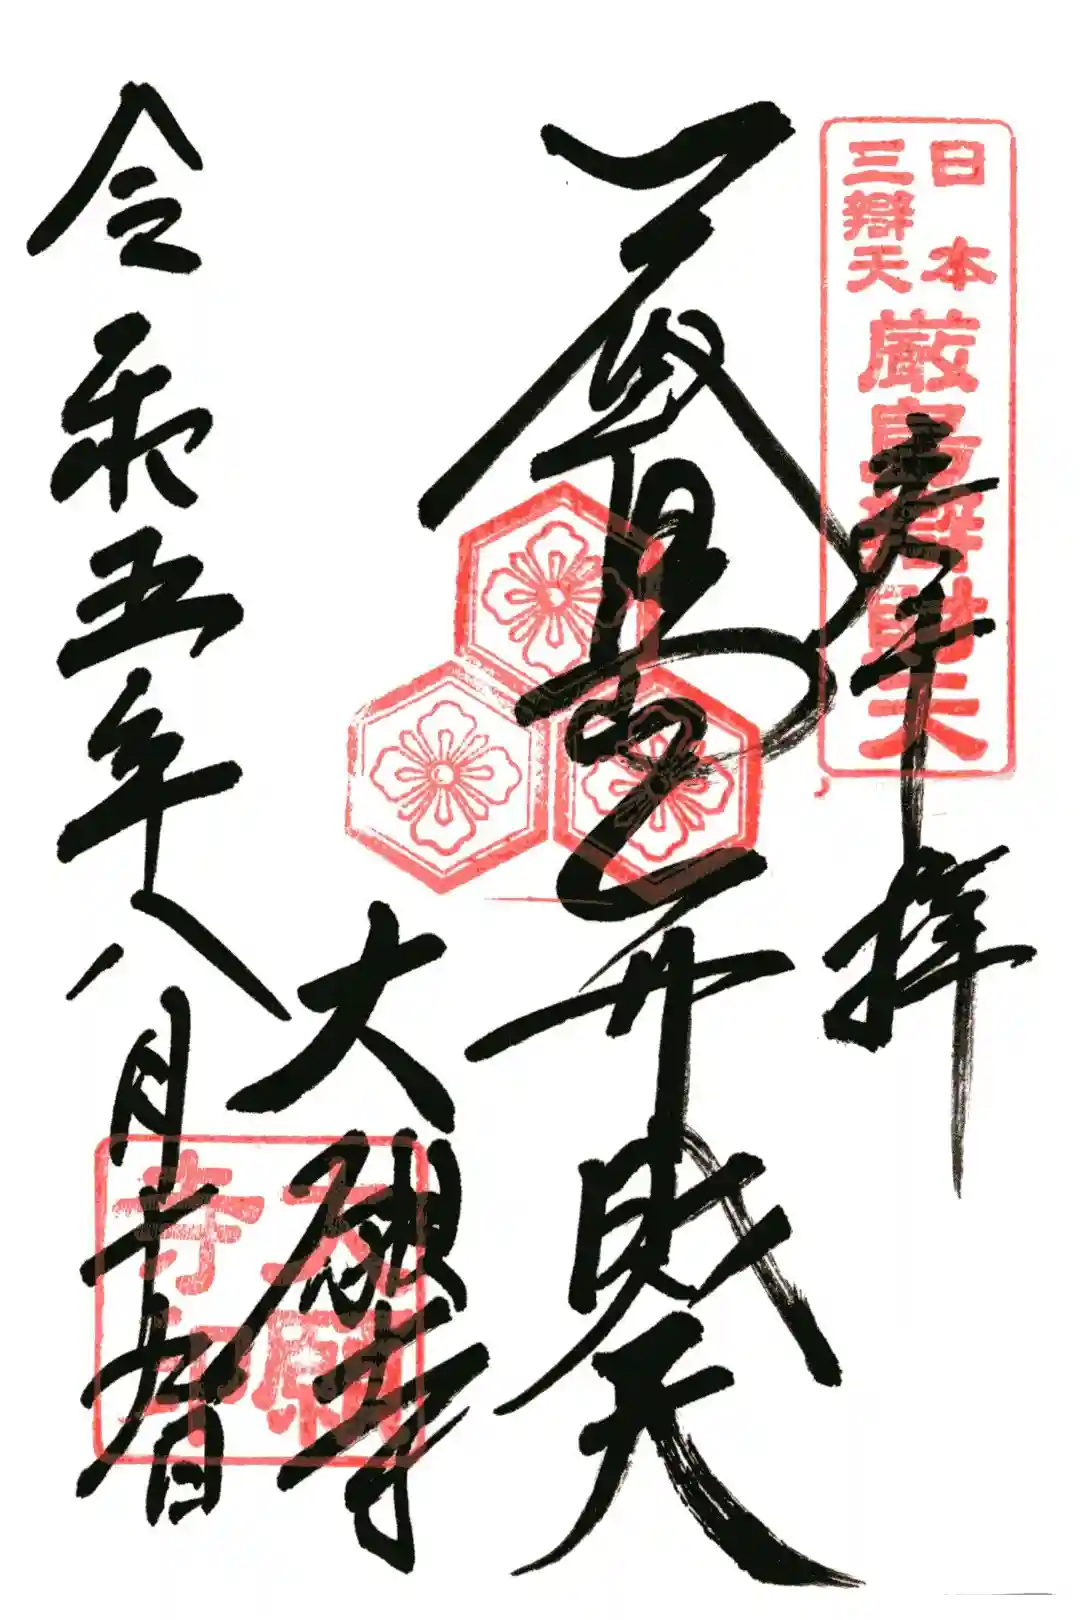 日本
三辯天
厳島辯財天
奉拝
厳島弁財天
大願寺
令和五年八月
大願
寺印